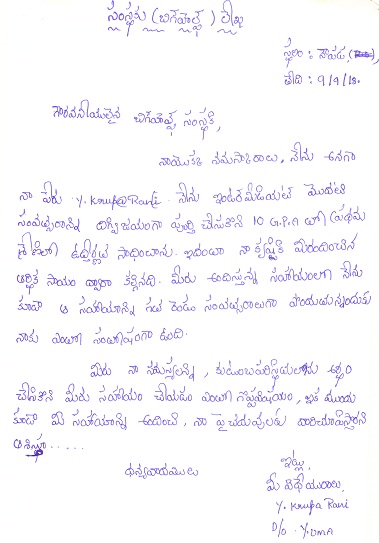 సంస్థకు (బిగ్‌హెల్ప్) లేఖ
స్థలం : రాపడు,
తేది : 9/9/18.
గౌరవనీయులైన బిగ్‌హెల్ప్ సంస్థకి,
నాయొక్క నమస్కారాలు, నేను అనగా
నా పేరు Y. Krupa Rani. నేను ఇంటర్మీడియట్ మొదటి
సంవత్సరాన్ని దిగ్విజయంగా పూర్తి చేసుకొని 10 G.P.A లో ప్రథమ
శ్రేణిలో ఉత్తీర్ణత సాధించాను. ఇదంతా నా కృషికి మీరందించిన
ఆర్థిక సాయం ద్వారా కల్గినది. మీరు అందిస్తున్న సహాయంలో నేను
కూడా ఆ సహాయాన్ని గత రెండు సంవత్సరాలుగా పొందుతున్నందుకు
నాకు ఎంతో సంతోషంగా ఉంది.
మీరు నా సమస్యలన్ని, కుటుంబపరిస్థితులను అర్థం
చేసుకొని మీరు సహాయం చేయడం ఎంతో గొప్పవిషయం, ఇక ముందు
కూడా మీ సహాయాన్ని అందించి, నా పైచదువులకు దారిచూపిస్తారని
ఆశిస్తూ.....
ధన్యవాదములు
ఇట్లు,
మీ విధేయురాలు,
Y. Krupa Rani
D/o Y. UMA